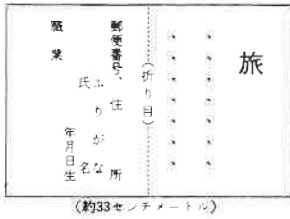 旅
(折り目)
郵便番号、住所
ふりがな
氏名
年月日生
職業
(約33センチメートル)